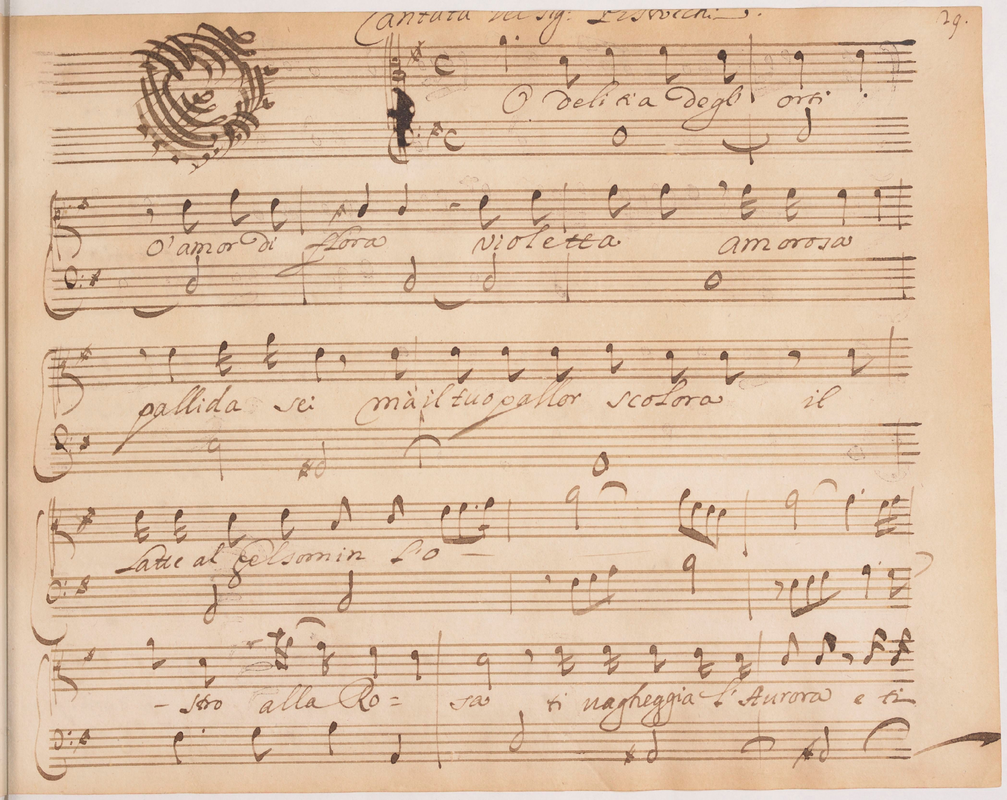 Cantata del sig:
29.
O delitia degli orti
O' amor di flora violetta amorosa
pallida sei mà il tuo pallor scolora il
latte al gelsomin l'o
- stro alla Ro = sa ti uagheggia l'Aurora e ti